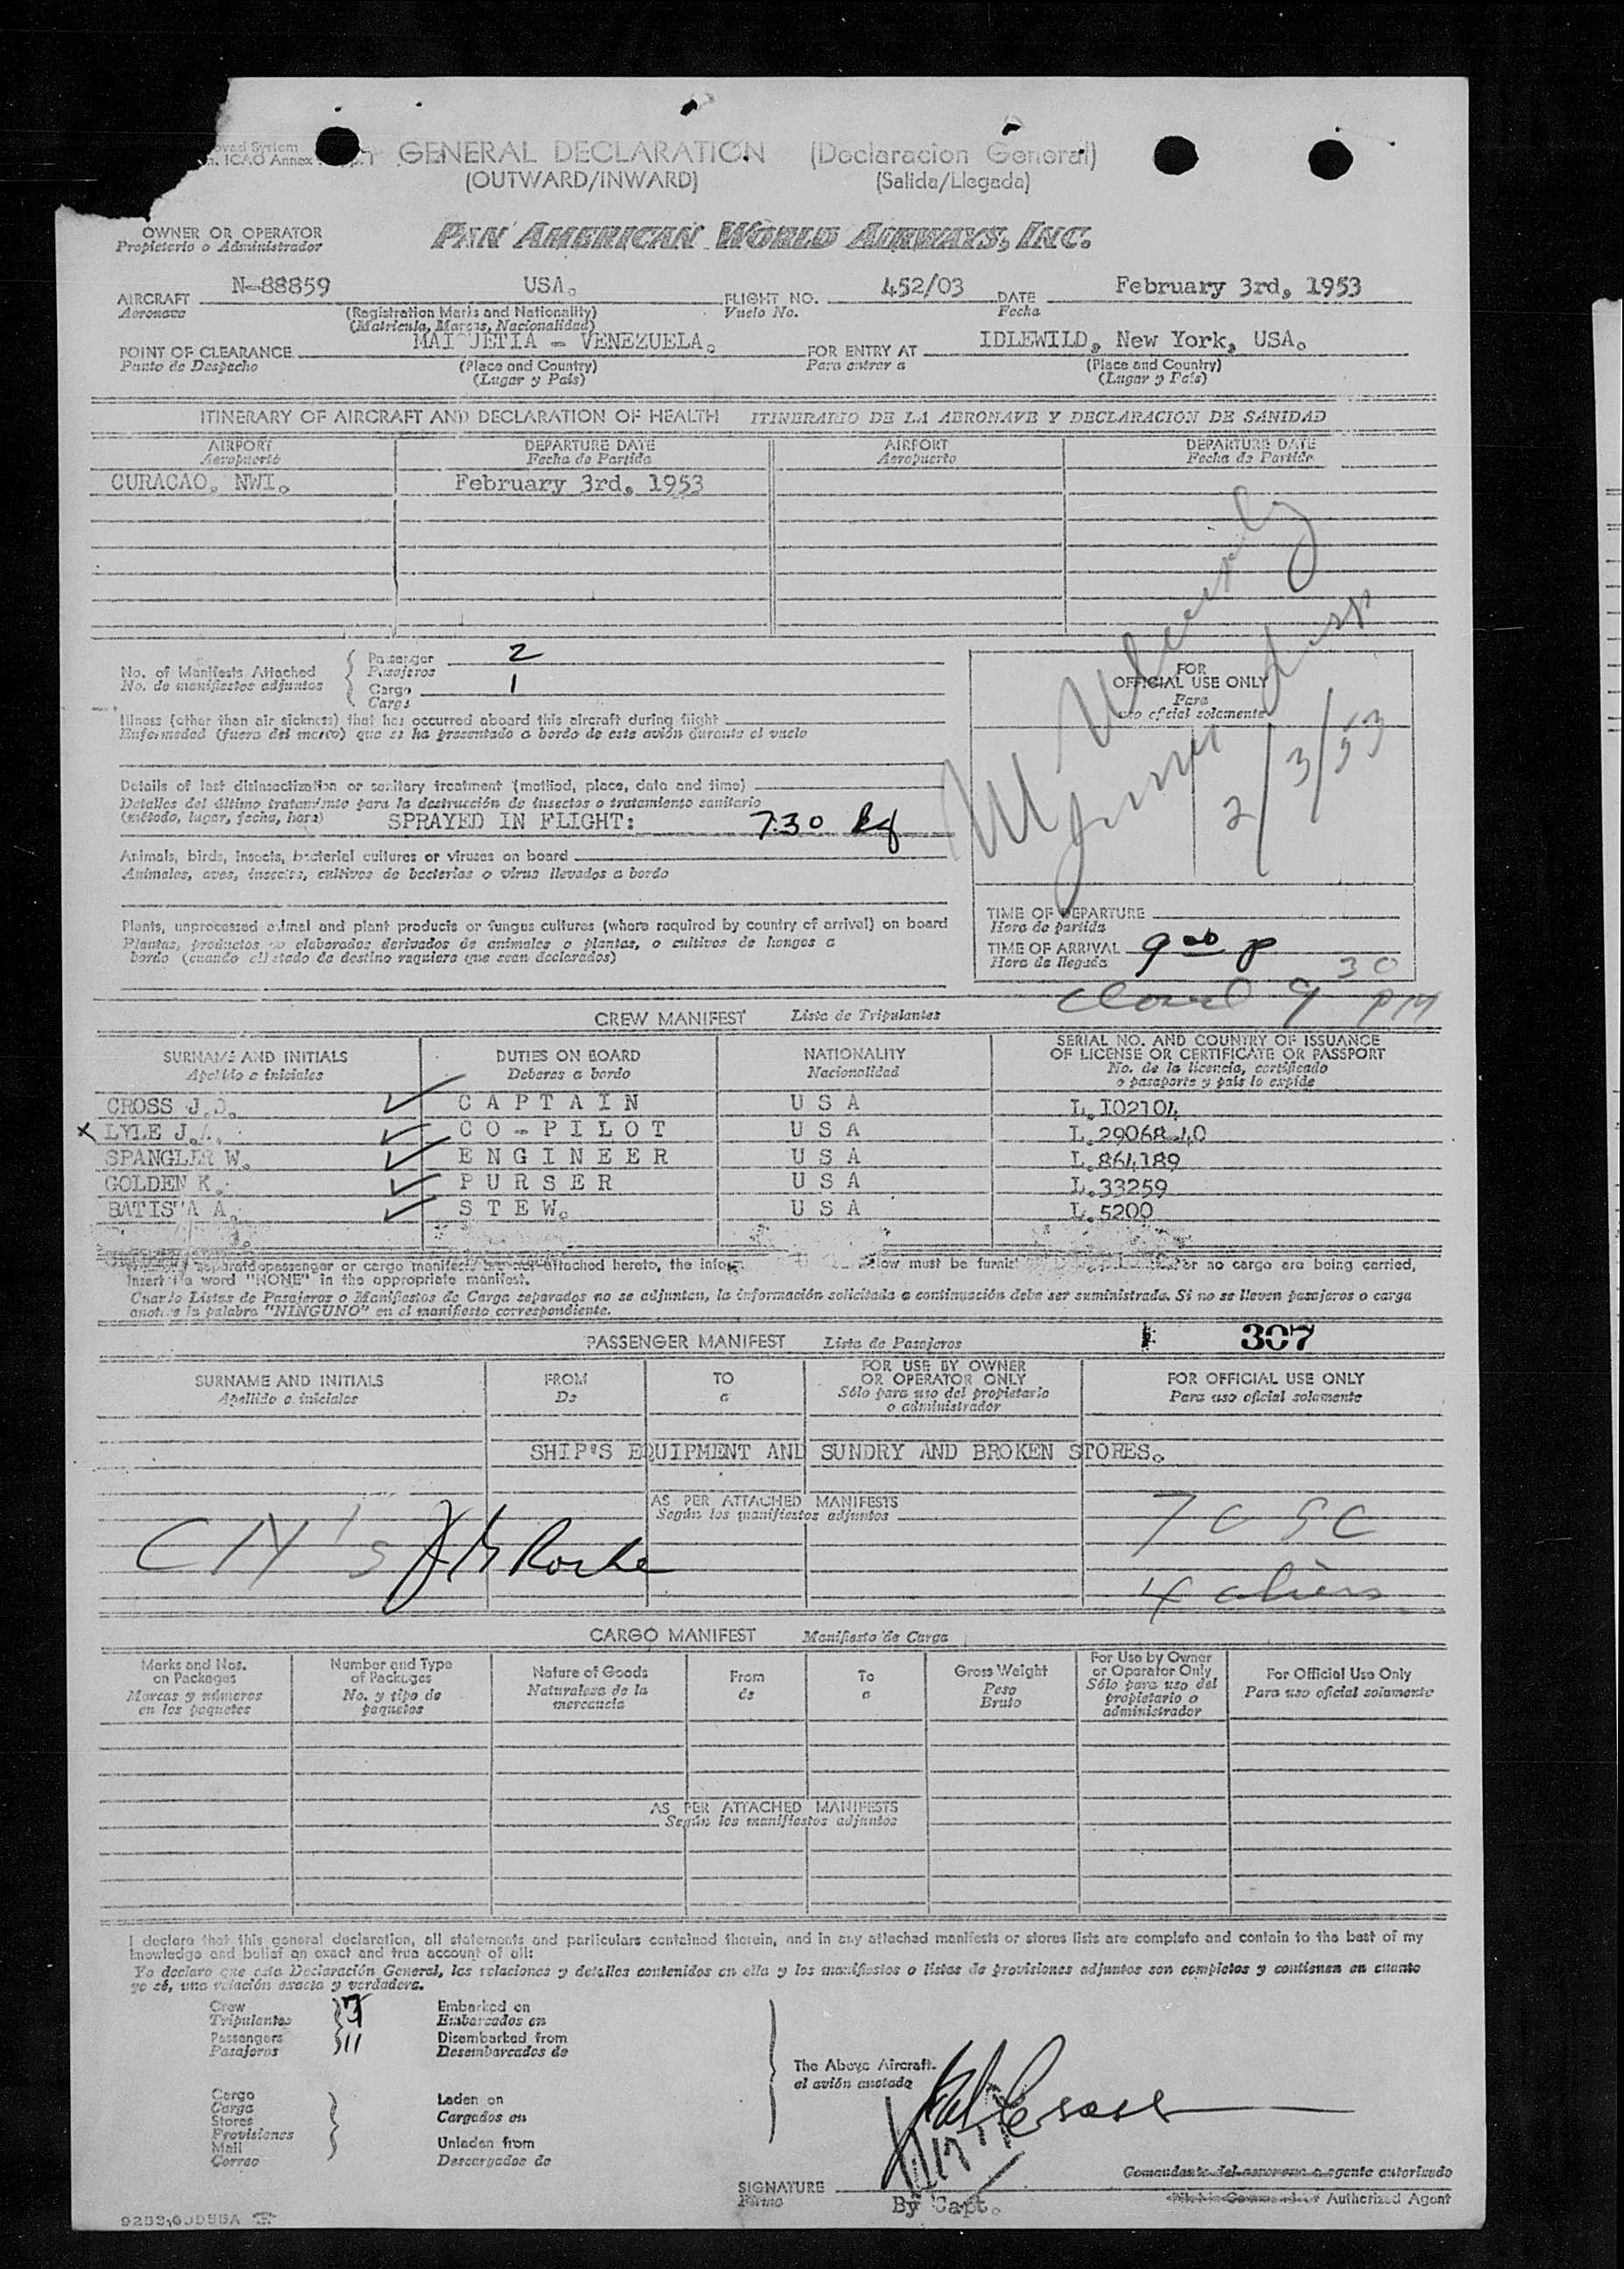 GENERAL DECLARATION (Declaracion General)
(OUTWARD/INWARD) (Salida/Llegada)
OWNER OR OPERATOR
Propietario o Administrador
PAN AMERICAN WORLD AIRWAYS, INC.
AIRCRAFT N-88859 USA. FLIGHT NO. 452/03 DATE February 3rd, 1953
Aeronave (Registration Marks and Nationality) Vuelo No. Fecha
(Matricula, Marcas, Nacionalidad)
POINT OF CLEARANCE MAIQUETIA - VENEZUELA. FOR ENTRY AT IDLEWILD, New York, USA.
Punto de Despacho (Place and Country) Para entrar a (Place and Country)
(Lugar y País) (Lugar y País)
ITINERARY OF AIRCRAFT AND DECLARATION OF HEALTH ITINERARIO DE LA AERONAVE Y DECLARACION DE SANIDAD
AIRPORT DEPARTURE DATE AIRPORT DEPARTURE DATE
Aeropuerto Fecha de Partida Aeropuerto Fecha de Partida
CURACAO. NWI. February 3rd, 1953
No. of Manifests Attached Passenger 2
No. de manifiestos adjuntos Pasajeros
Cargo 1
Carga
FOR
OFFICIAL USE ONLY
Para
uso oficial solamente
2/3/53
Illness (other than air sickness) that has occurred aboard this aircraft during flight
Enfermedad (fuera del mareo) que se ha presentado a bordo de este avión durante el vuelo
Details of last disinsectization or sanitary treatment (method, place, date and time)
Detalles del último tratamiento para la destrucción de insectos o tratamiento sanitario
(método, lugar, fecha, hora) SPRAYED IN FLIGHT: 730
Animals, birds, insects, bacterial cultures or viruses on board
Animales, aves, insectos, cultivos de bacterias o virus llevados a bordo
Plants, unprocessed animal and plant products or fungus cultures (where required by country of arrival) on board
Plantas, productos no elaborados derivados de animales o plantas, o cultivos de hongos a
bordo (cuando el estado de destino requiera que sean declarados)
TIME OF DEPARTURE
Hora de partida
TIME OF ARRIVAL 9 00 p
Hora de llegada
9 30 PM
CREW MANIFEST Lista de Tripulantes
SURNAME AND INITIALS DUTIES ON BOARD NATIONALITY SERIAL NO. AND COUNTRY OF ISSUANCE
OF LICENSE OR CERTIFICATE OR PASSPORT
Apellido e iniciales Deberes a bordo Nacionalidad No. de la licencia, certificado
o pasaporte y país lo expide
CROSS J.D. CAPTAIN USA L.I02104
x LYLE J.A. CO-PILOT USA L.29068-40
SPANGLER W. ENGINEER USA L.864189
GOLDEN K. PURSER USA L.33259
BATISTA A. STEW. USA L.5200
passenger or cargo manifests are not attached hereto, the must be or no cargo are being carried,
insert the word "NONE" in the appropriate manifest.
Cuando Listas de Pasajeros o Manifiestos de Carga separados no se adjunten, la información solicitada a continuación debe ser suministrada. Si no se lleven pasajeros o carga
anotese la palabra "NINGUNO" en el manifiesto correspondiente.
PASSENGER MANIFEST Lista de Pasajeros 307
SURNAME AND INITIALS FROM TO FOR USE BY OWNER
OR OPERATOR ONLY FOR OFFICIAL USE ONLY
Apellido e iniciales De a Sólo para uso del propietario
o administrador Para uso oficial solamente
SHIP'S EQUIPMENT AND SUNDRY AND BROKEN STORES.
AS PER ATTACHED MANIFESTS
Según los manifiestos adjuntos
4 aliens
CARGO MANIFEST Manifiesto de Carga
Marks and Nos.
on Packages
Marcas y números
en los paquetes
Number and Type
of Packages
No. y tipo de
paquetes
Nature of Goods
Naturaleza de la
mercancia
From
de
To
a
Gross Weight
Peso
Bruto
For Use by Owner
or Operator Only
Sólo para uso del
propietario o
administrador
For Official Use Only
Para uso oficial solamente
AS PER ATTACHED MANIFESTS
Según los manifiestos adjuntos
I declare that this general declaration, all statements and particulars contained therein, and in any attached manifests or stores lists are complete and contain to the best of my
knowledge and belief an exact and true account of all:
Yo declaro que esta Declaración General, las relaciones y detalles contenidos en ella y los manifiestos o listas de provisiones adjuntos son completos y contienen en cuanto
yo sé, una relación exacta y verdadera.
Crew Embarked on
Tripulantes Embarcados en
Passengers 11 Disembarked from
Pasajeros Desembarcados de
The Above Aircraft.
el avión anotado
Cargo Laden on
Carga
Stores Cargados en
Provisiones
Mail Unladen from
Correo Descargados de
SIGNATURE
Firma
By Capt.
Comandante del aeronave o agente autorizado
Authorized Agent